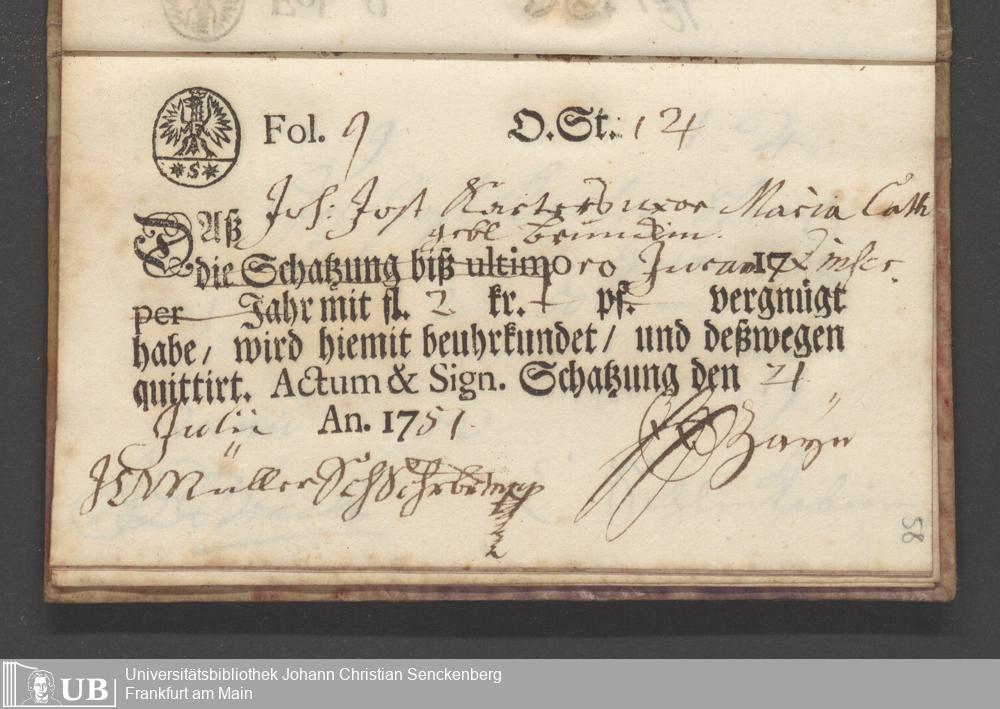 Fol. 9 O.St. 124
Joh: Jost uxor Maria Cath
Daß gebl
die Schatzung biß ultimo pro 17 inscr.
per Jahr mit fl. 2 kr. pf. vergnügt
habe / wird hiemit beuhrkundet / und deßwegen
quittirt. Actum & Sign. Schatzung den 21
Julii An. 1751.
Müller
S
58
Universitätsbibliothek Johann Christian Senckenberg
UB Frankfurt am Main